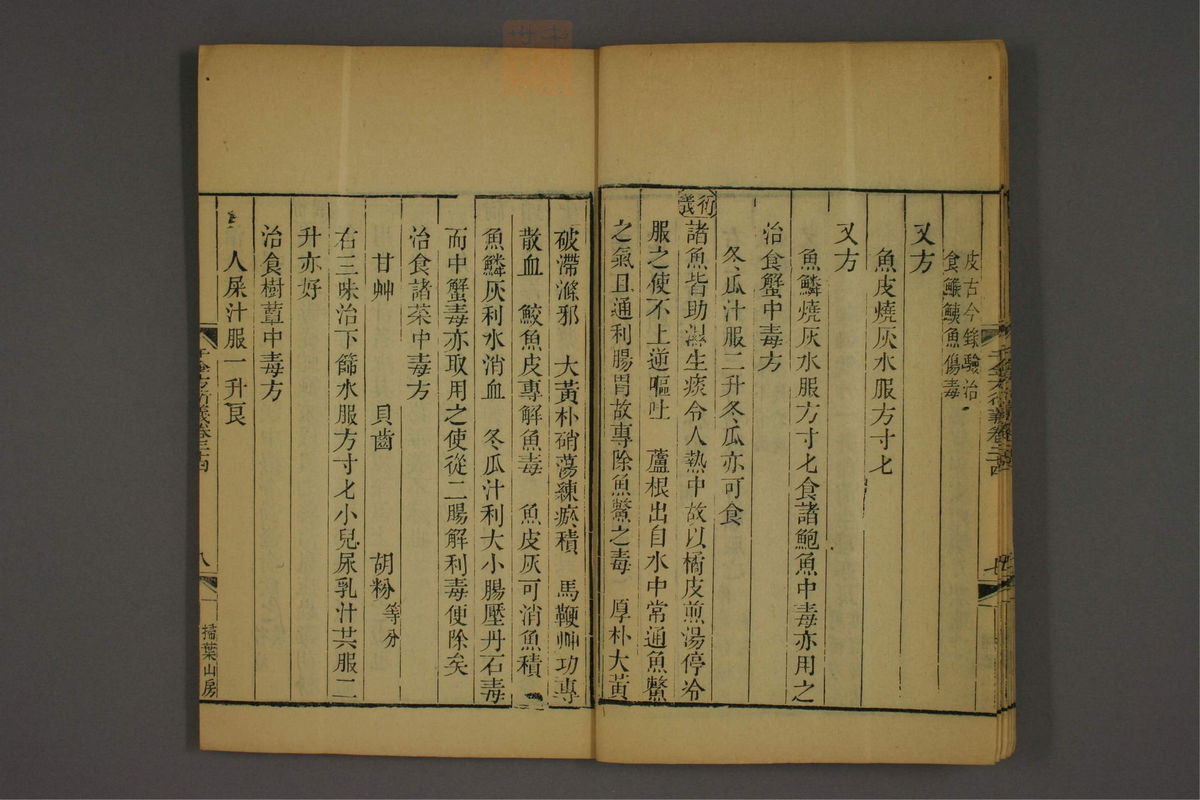 皮古今錄驗治
食鱁鮧魚傷毒
又方
魚皮燒灰水服方寸七
又方
魚鱗燒灰水服方寸七食諸鮑魚中毒亦用之
治食蟹中毒方
冬瓜汁服二升冬瓜亦可食
衍義
諸魚皆助濕生痰令人熱中故以橘皮煎湯停冷
服之使不上逆嘔吐　蘆根出自水中常通魚鱉
之氣且通利腸胃故專除魚鱉之毒　厚朴大黃
破滯滌邪　大黃朴硝蕩練瘀積　馬鞭艸功專
散血　鮫魚皮專解魚毒　魚皮灰可消魚積
魚鱗灰利水消血　冬瓜汁利大小腸壓丹石毒
而中蟹毒亦取用之使從二腸解利毒便除矣
治食諸菜中毒方
甘艸　貝齒　胡粉等分
右三味治下篩水服方寸七小兒尿乳汁共服二
升亦好
治食樹蕈中毒方
人屎汁服一升良
千金方衍義卷二十四
八
掃葉山房